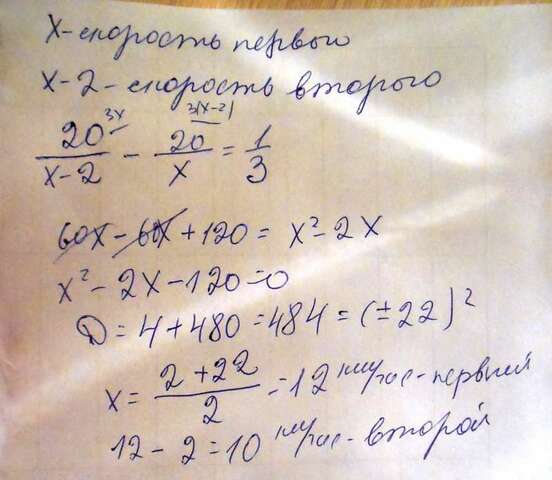 х-скорость первого
х-2-скорость второго
20^3х/х-2 - 20^3(х-2)/х = 1/3
60х-60х+120 = х²-2х
х²-2х-120=0
D=4+480=484=(±22)²
х= 2+22/2 =12 км/час-первый
12-2=10 км/час-второй